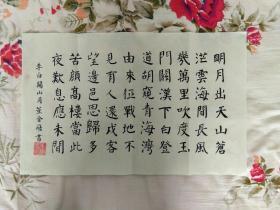 明月出天山蒼
茫雲海間長風
幾萬里吹度玉
門關漢下白登
道胡窺青海灣
由來征戰地不
見有人還戍客
望邊邑思歸多
苦顏高樓當此
夜歎息應未閒
李白關山月 金書